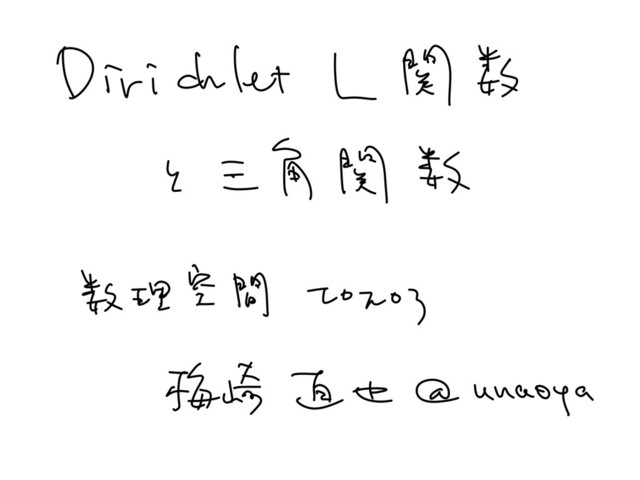 Dirichlet L 関数
と 三角関数
数理空間 τοπος
梅崎 直也 @unaoya